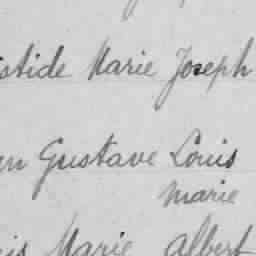 istide Marie Joseph
en Gustave Louis
Marie
is Marie Albert